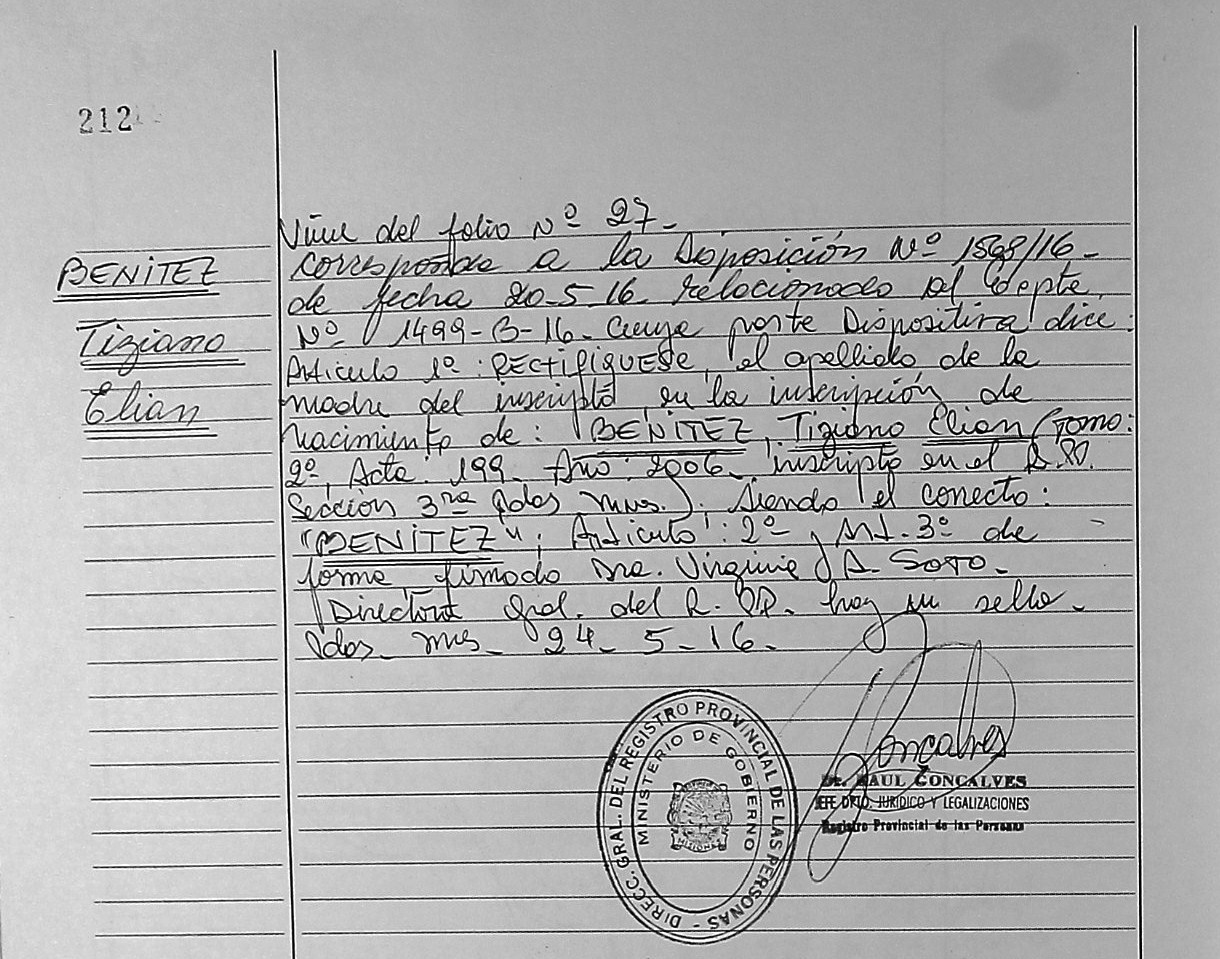 212
BENITEZ
Tiziano
Elian
Viene del folio Nº 27-
Corresponde a la Disposición Nº 1598/16-
de fecha 20-5-16- relacionado al Expte.
Nº 1499-B-16- Cuya parte Dispositiva dice:
Articulo 1º: RECTIFIQUESE, el apellido de la
madre del inscripto, en la inscripción de
nacimiento de: BENITEZ, Tiziano Elian (Tomo:
2º, Acta: 199- Año: 2006- inscripto en el R.PP.
Sección 3ra Pdas. Mnes.). Siendo el correcto:
"BENITEZ"; Articulo: 2º, Art. 3º de
forma, firmado Dra. Virginia A. SOTO-
Directora Gral. del R.PP. hay un sello-
Pdas- Mnes- 24-5-16-
Goncalves
Dr. RAUL GONCALVES
JEFE DPTO. JURIDICO Y LEGALIZACIONES
Registro Provincial de las Personas
DIRECC. GRAL. DEL REGISTRO PROVINCIAL DE LAS PERSONAS -
MINISTERIO DE GOBIERNO
MISIONES